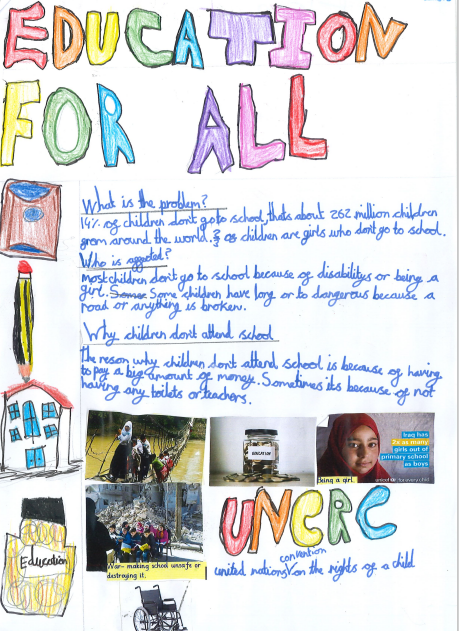 EDUCATION
FOR ALL
What is the problem?
14% of children don't go to school, thats about 262 million children
from around the world. ⅔ of children are girls who don't go to school.
Who is affected?
most children don't go to school because of disabilitys or being a
girl. Some Some children have long or to dangerous because a
road or anything is broken.
Why children don't attend school
the reson why children don't attend school is because of having
to pay a big amount of money. Sometimes its because of not
having any toilets or teachers.
EDUCATION
Iraq has
2x as many
girls out of
primary school
as boys
Being a girl.
unicef
for every child
Education
War- making school unsafe or
destroying it.
UNCRC
convention
united nations v on the rights of a child